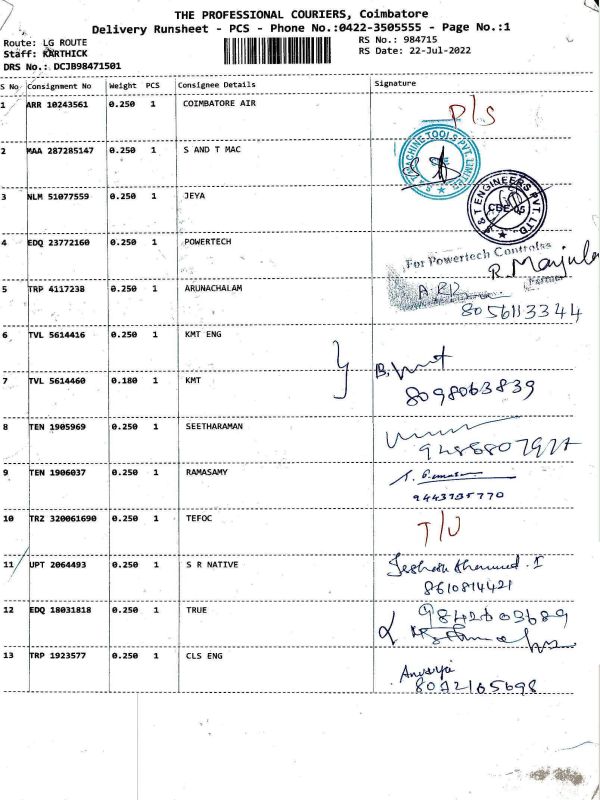 THE PROFESSIONAL COURIERS, Coimbatore
Delivery Runsheet - PCS - Phone No.:0422-3505555 - Page No.:1
Route: LG ROUTE
RS No.: 984715
Staff: KARTHICK
RS Date: 22-Jul-2022
DRS No.: DCJB98471501
S No Consignment No Weight PCS Consignee Details Signature
1 ARR 10243561 0.250 1 COIMBATORE AIR
D/S
2 MAA 287285147 0.250 1 S AND T MAC
3 NLM 51077559 0.250 1 JEYA
S & T ENGINEERS PVT. LTD.
CBE-05
4 EDQ 23772160 0.250 1 POWERTECH
For Powertech Controls
R. Manjula
Partner
5 TRP 4117238 0.250 1 ARUNACHALAM
8056113344
6 TVL 5614416 0.250 1 KMT ENG
7 TVL 5614460 0.180 1 KMT
8098063839
8 TEN 1905969 0.250 1 SEETHARAMAN
9 TEN 1906037 0.250 1 RAMASAMY
10 TRZ 320061690 0.250 1 TEFOC
T/U
11 UPT 2064493 0.250 1 S R NATIVE
8610814421
12 EDQ 18031818 0.250 1 TRUE
13 TRP 1923577 0.250 1 CLS ENG
8072165698